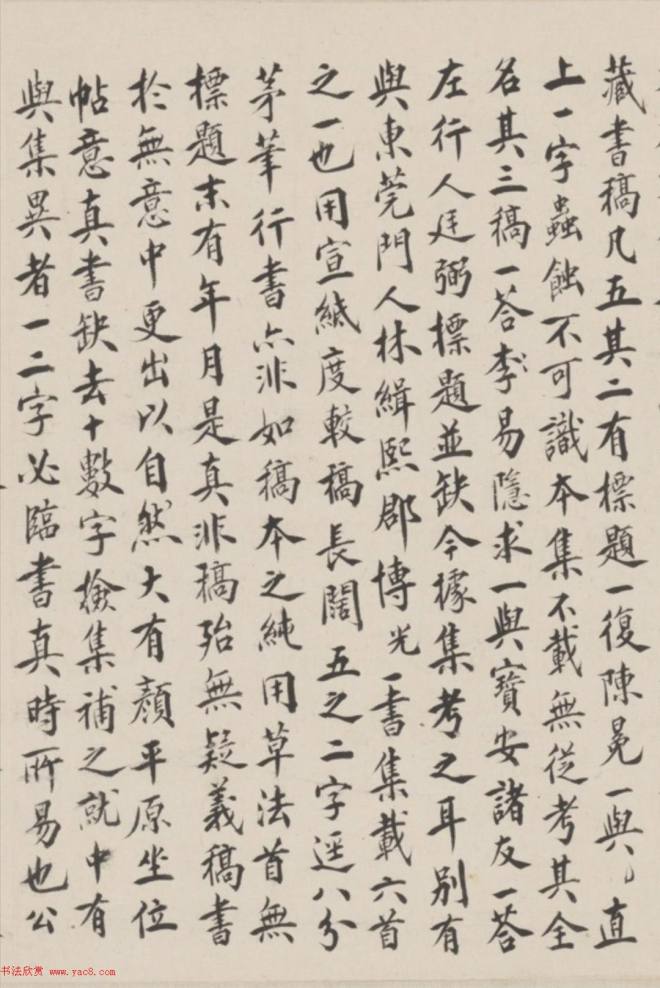 藏書稿凡五其二有標題一復陳冕一與直
上一字蟲蝕不可識本集不載無從考其全
名其三稿一答李易隱求一與寶安諸友一答
左行人廷弼標題並缺今據集考之耳別有
與東莞門人林緝熙郡博光一書集載六首
之一也用宣紙度較稿長闊五之二字逕八分
茅筆行書亦非如稿本之純用草法首無
標題末有年月是真非稿殆無疑義稿書
於無意中更出以自然大有顏平原坐位
帖意真書缺去十數字撿集補之就中有
與集異者一二字必臨書真時所易也公
书法欣赏 www.yac8.com